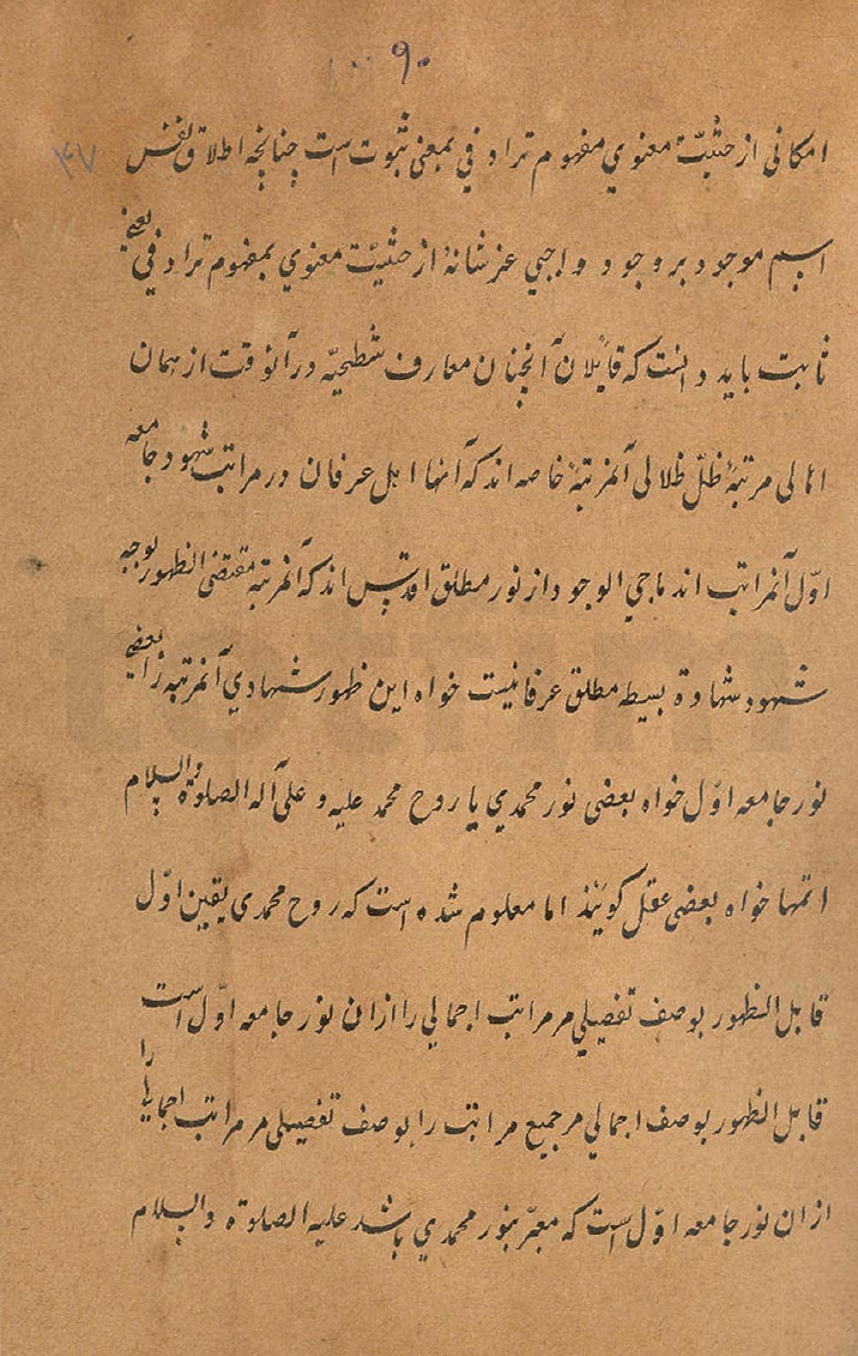 ۹۰
۴۷
امکانی از حیثیّت معنوی مفهوم ترادفی بمعنی ثبوت است چنانچه اطلاق نفس
اسم موجود بر وجود واجبی عز شانهٔ از حیثیّت معنوی بمفهوم ترادفی یعنی
ثابت باید دانست که قایلان آنچنان معارف شطحیّه در آنوقت از همان
اهالی مرتبهٔ ظلّ ظلالی آنمرتبهٔ خاصه اند که آنها اهل عرفان در مراتب شهود جامعه
اوّل آنمراتب اند ماجی الوجود از نور مطلق اقدس اند که آنمرتبه مقتضی الظهور بوجه
شهود شهادة بسیطه مطلق عرفانیست خواه این ظهور شهادی آنمرتبه را بعضی
نور جامعه اوّل خواه بعضی نور محمدی یا روح محمد علیه و علی آله الصلوة والسلام
اتمها خواه بعضی عقل کویند اما معلوم شده است که روح محمدی یقین اوّل
قابل الظهور بوصف تفصیلی مر مراتب اجمالی را از ان نور جامعه اوّل است
قابل الظهور بوصف اجمالی مر جمیع مراتب را بوصف تفصیلی مر مراتب اجمالی را
از ان نور جامعه اوّل است که معبّر بنور محمدی باشد علیه الصلوة والسلام